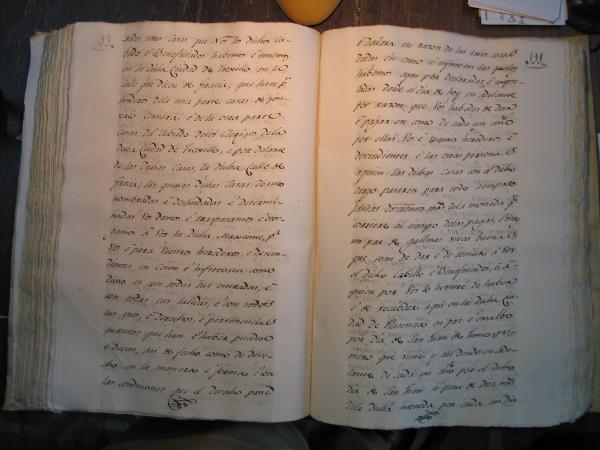 unas casas que Nos los dichos ca-
bildo e Beneficiados habemos e tenemos
en la dicha Ciudad de Truxillo en la
calle que dicen de gracia, que han por
linderos de la una parte casas de
e de la otra parte
casas del cabildo delos clerigos dela
dicha Ciudad de Truxillo, e por delante
de las dichas casas, la dicha Calle de
gracia; las quales dichas casas de suso
nombradas e deslindadas e determi-
nadas Vos damos e traspasamos e otor-
gamos a Vos la dicha
Vos e para Vuestros herederos, e descen-
dientes, en como e infitecsin como
dicho es con todas sus entradas, e
con todas sus salidas, e con todos
sus usos, e derechos, e pertenencias
quantas que han e haber pueden
e deben, asi de fecho como de dere-
cho en la manera e forma e con
las condiciones que el derecho pone
131
e declara en razon de las tales cosas
dadas en como e infitecsin las quales
habemos aqui por declaradas, e
desde el dia de hoy en delante
por razon que Vos habedes de dar
e pagar en como de cada un año
por ellas Vos e Vuestros herederos e
descendientes e las otras personas
a quien las dichas casas con el dicho
cargo pasaren para todo siempre
jamas mrs dela moneda que
corriere al tiempo delas pagas, e mas
un par de gallinas vivas buenas
que sean de dar e de tomar a Nos
el dicho Cabildo e Beneficiados, o a
quien por Nos lo hobiere de haber
e de recaudar aqui en la dicha Ciu-
dad de Plasencia en paz e en salvo
por dia de San Juan de Junio pri-
mero que viene y asi dende en ade-
lante de cada un año por el dicho
dia de San Juan so pena de diez mrs
dela dicha moneda por cada un dia